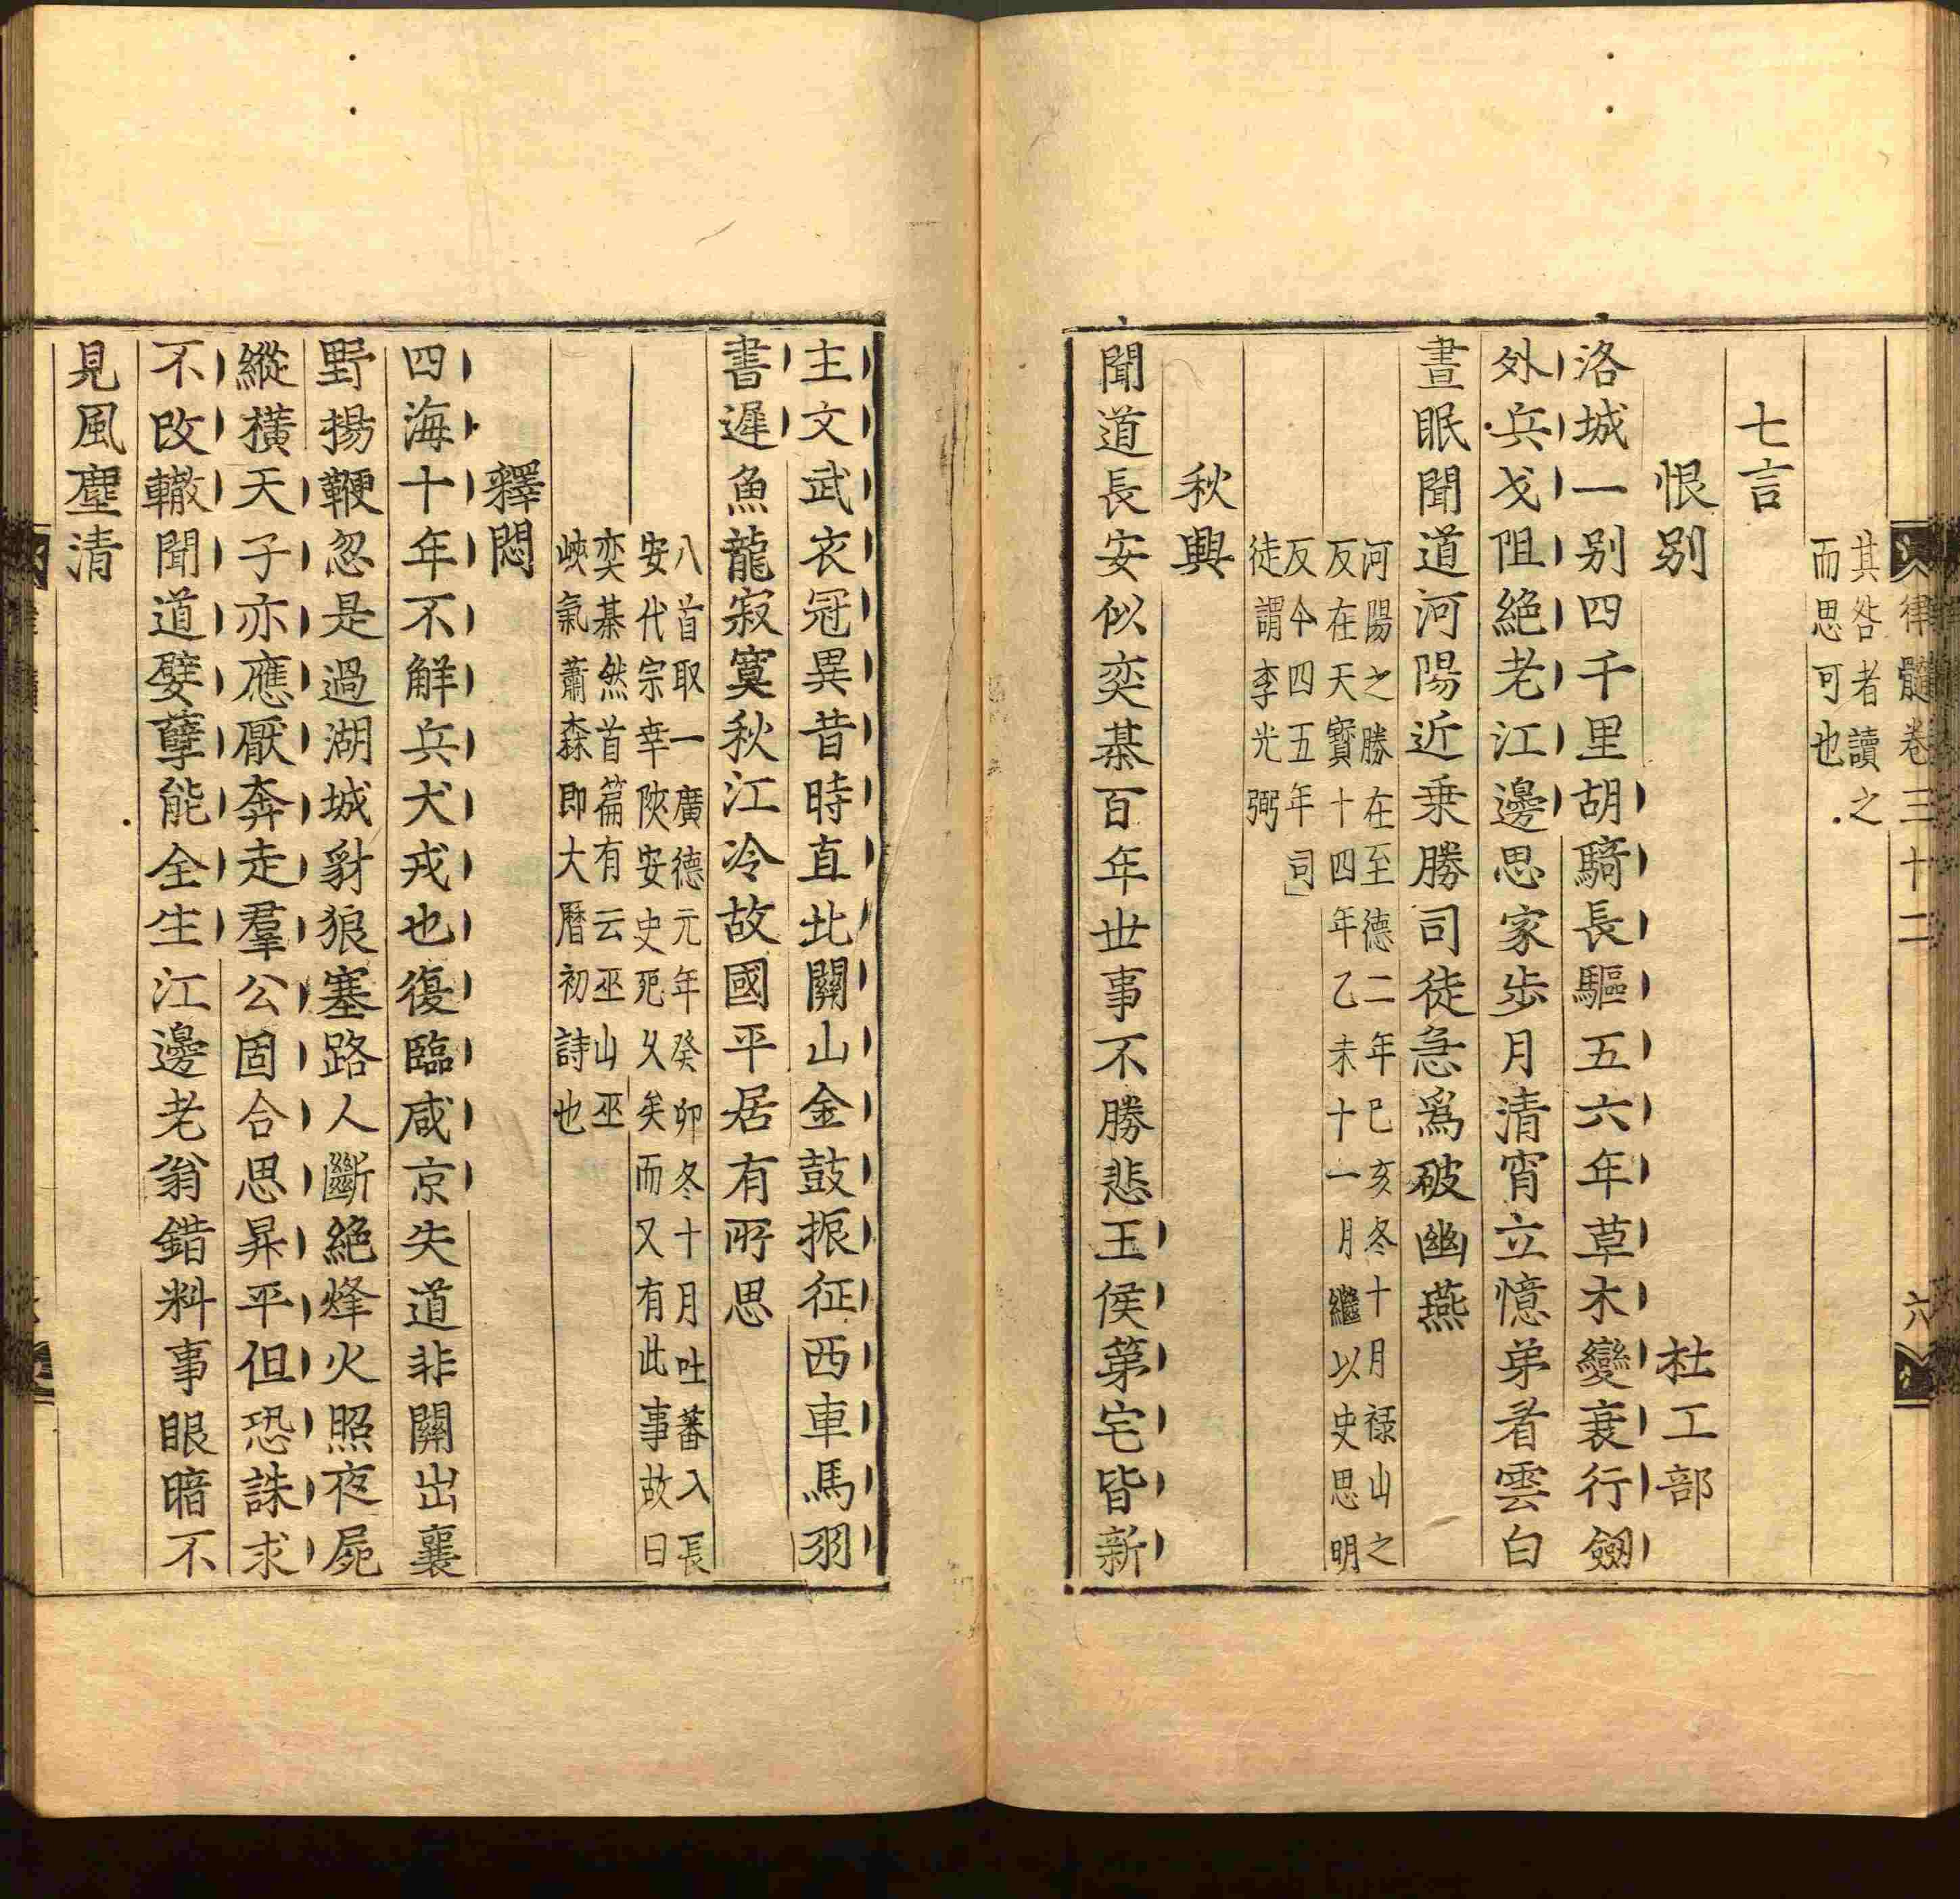 律髓卷三十二
六
其咎者讀之
而思可也
七言
恨别
杜工部
洛城一别四千里胡騎長驅五六年草木變衰行劔
外兵戈阻絶老江邊思家歩月清宵立憶弟看雲白
晝眠聞道河陽近乗勝司徒急爲破幽燕
河陽之勝在至德二年己亥冬十月禄山之
反在天寳十四年乙未十一月繼以史思明
反今四五年司
徒謂李光弼
秋興
聞道長安似奕棊百年世事不勝悲王侯第宅皆新
主文武衣冠異昔時直北關山金鼓振征西車馬羽
書遲魚龍寂寞秋江冷故國平居有所思
八首取一廣德元年癸卯冬十月吐蕃入長
安代宗幸陜安史死乆矣而又有此事故曰
奕棊然首篇有云巫山巫
峽氣蕭森即大曆初詩也
釋悶
四海十年不解兵犬戎也復臨咸京失道非關出襄
野揚鞭忽是過湖城豺狼塞路人斷絶烽火照夜屍
縱横天子亦應厭奔走羣公固合思昇平但恐誅求
不改轍聞道嬖孽能全生江邊老翁錯料事眼暗不
見風塵清